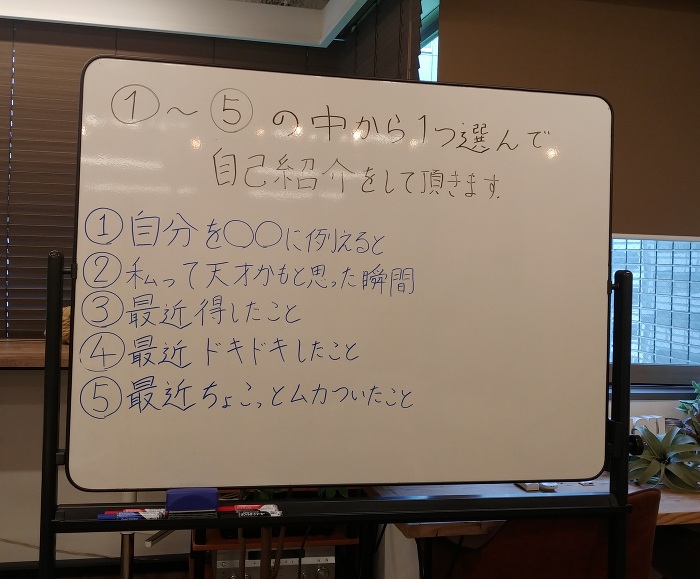 ①～⑤の中から1つ選んで
自己紹介をして頂きます.
①自分を〇〇に例えると
②私って天才かもと思った瞬間
③最近得したこと
④最近ドキドキしたこと
⑤最近ちょこっとムカついたこと